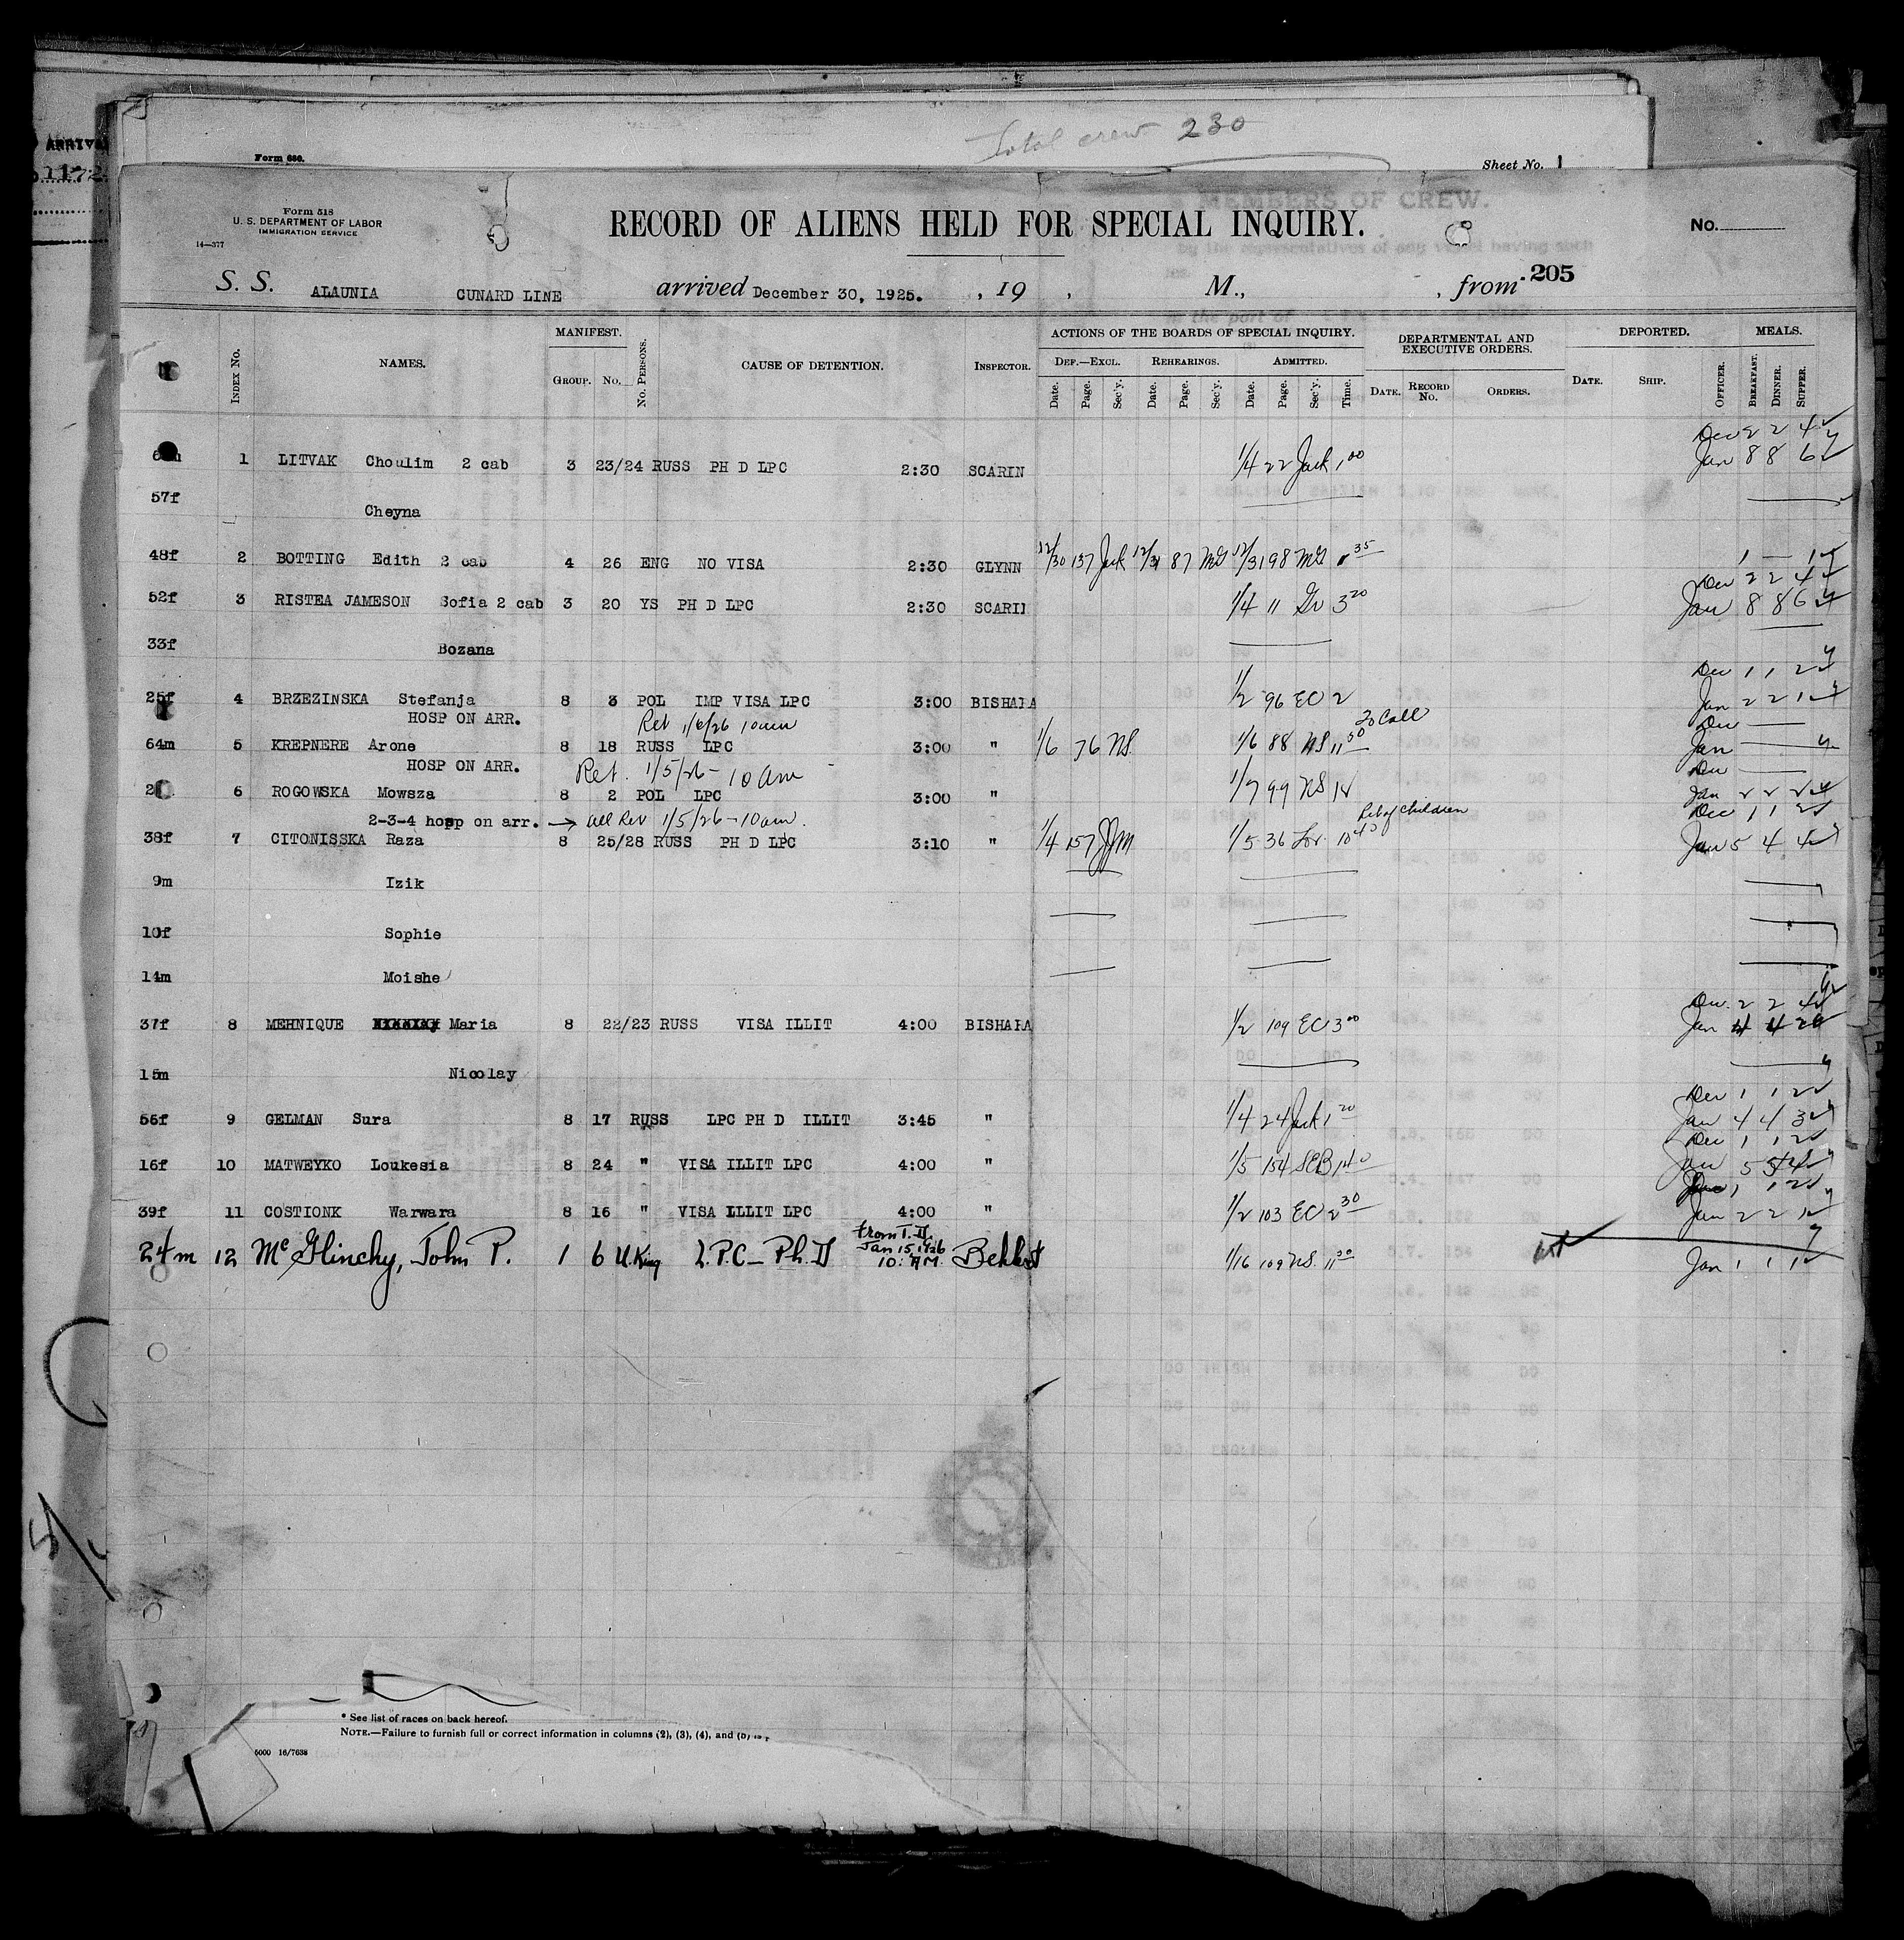 Total crew 230
ARRIVA
1172
Form 680.
Sheet No. 1
MEMBERS OF CREW.
by the representatives of any vessel having such
Form 518
U. S. DEPARTMENT OF LABOR
IMMIGRATION SERVICE
14—377
RECORD OF ALIENS HELD FOR SPECIAL INQUIRY.
No.
S. S. ALAUNIA CUNARD LINE arrived December 30, 1925. , 19 , M., , from 205
MANIFEST.
ACTIONS OF THE BOARDS OF SPECIAL INQUIRY.
DEPARTMENTAL AND EXECUTIVE ORDERS.
DEPORTED.
MEALS.
Index No. NAMES. Group. No. No. Persons. CAUSE OF DETENTION. Inspector. Def.—Excl. Rehearings. Admitted.
Date. Page. Sec'y. Date. Page. Sec'y. Date. Page. Sec'y. Time. Date. Record No. Orders. Date. Ship. Officer. Breakfast. Dinner. Supper.
Dec 2 2 4
1 LITVAK Choulim 2 cab 3 23/24 RUSS PH D LPC 2:30 SCARIN 1/4 22 Jack 1 00 Jan 8 8 6
57f Cheyna
48f 2 BOTTING Edith 2 cab 4 26 ENG NO VISA 2:30 GLYNN 12/30 137 Jack 12/31 87 McG 12/31 98 McG 35 1 — 1
Dec 2 2 4
52f 3 RISTEA JAMESON Sofia 2 cab 3 20 YS PH D LPC 2:30 SCARIN 1/4 11 Gr 3 20 Jan 8 8 6
33f Bozana
Dec 1 1 2
25f 4 BRZEZINSKA Stefanja 8 3 POL IMP VISA LPC 3:00 BISHARA 1/2 96 EC 2 Jan 2 2 1
HOSP ON ARR. Ret 1/6/26 10am To Call Dec —
64m 5 KREPNERE Arone 8 18 RUSS LPC 3:00 " 1/6 76 NS 1/6 88 NS 11 50 Jan —
HOSP ON ARR. Ret. 1/5/26 - 10 am Dec —
6 ROGOWSKA Mowsza 8 2 POL LPC 3:00 " 1/7 99 NS Jan 2 2 2
2-3-4 hosp on arr. → all Ret 1/5/26 - 10am. Ret of children Dec 1 1 2
38f 7 CITONISSKA Raza 8 25/28 RUSS PH D LPC 3:10 " 1/4 157 JJM 1/5 36 10 40 Jan 5 4 4
9m Izik
10f Sophie
14m Moishe
Dec. 2 2 4
37f 8 MEHNIQUE Maria 8 22/23 RUSS VISA ILLIT 4:00 BISHARA 1/2 109 EC 3 00 Jan 4 4 2
15m Nicolay
Dec 1 1 2
56f 9 GELMAN Sura 8 17 RUSS LPC PH D ILLIT 3:45 " 1/4 24 Jack 1 20 Jan 4 4 3
Dec 1 1 2
16f 10 MATWEYKO Loukesia 8 24 " VISA ILLIT LPC 4:00 " 1/5 154 SEB 1 40 Jan 5 5 4
Dec 1 1 2
39f 11 COSTIONK Warwara 8 16 " VISA ILLIT LPC 4:00 " 1/2 103 EC 2 30 Jan 2 2 1
24m 12 McGlinchy, John P. 1 6 U.King L.P.C – Ph. D from T.D. Jan 15, 1926 10: AM 1/16 109 NS. 11 00 Jan 1 1 1
5/
* See list of races on back hereof.
NOTE.—Failure to furnish full or correct information in columns (2), (3), (4), and (5)
5000 16/7638